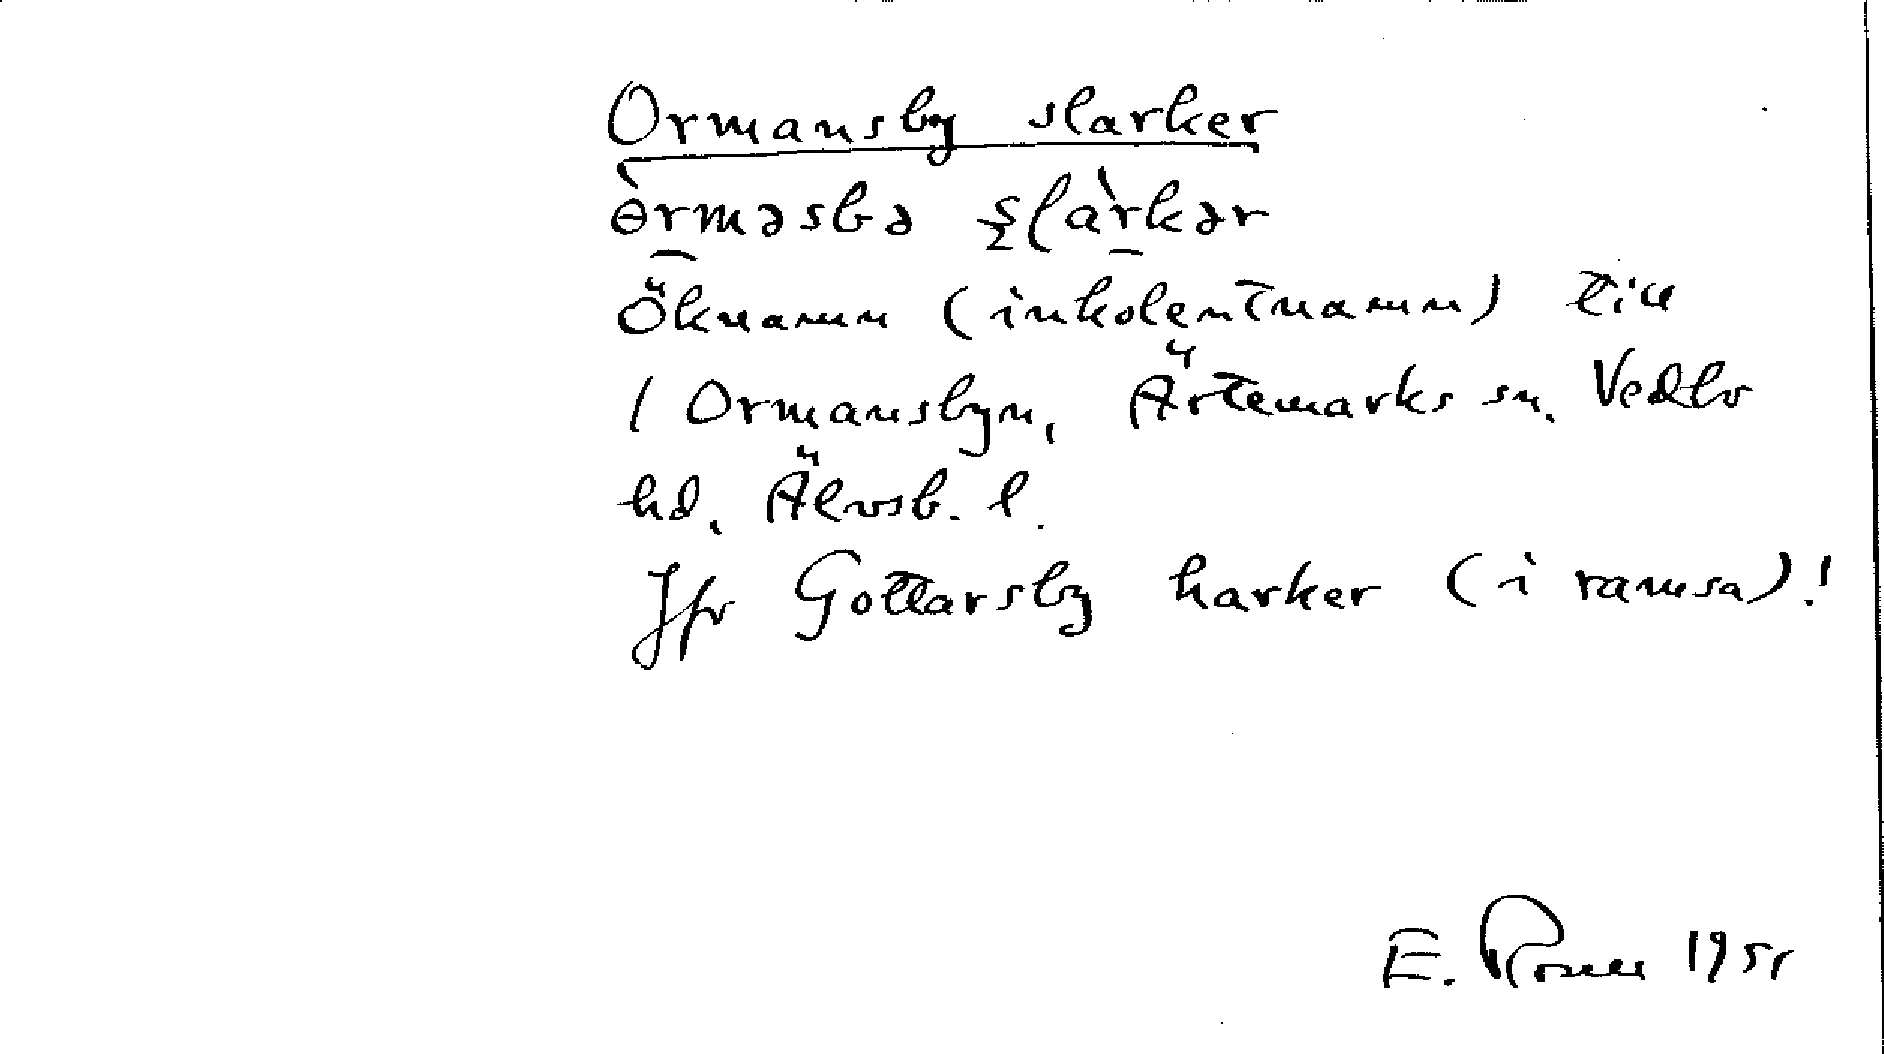 Ormansby slarker
ɵ̀rməsbə s̱làrkər
Öknamn (inkolentnamn) till
/ Ormansbyn, Ärtemarks sn. Vedbo
hd. Älvsb. l.
Jfr Gottarsby harker (i ramsa)!
E. 1951